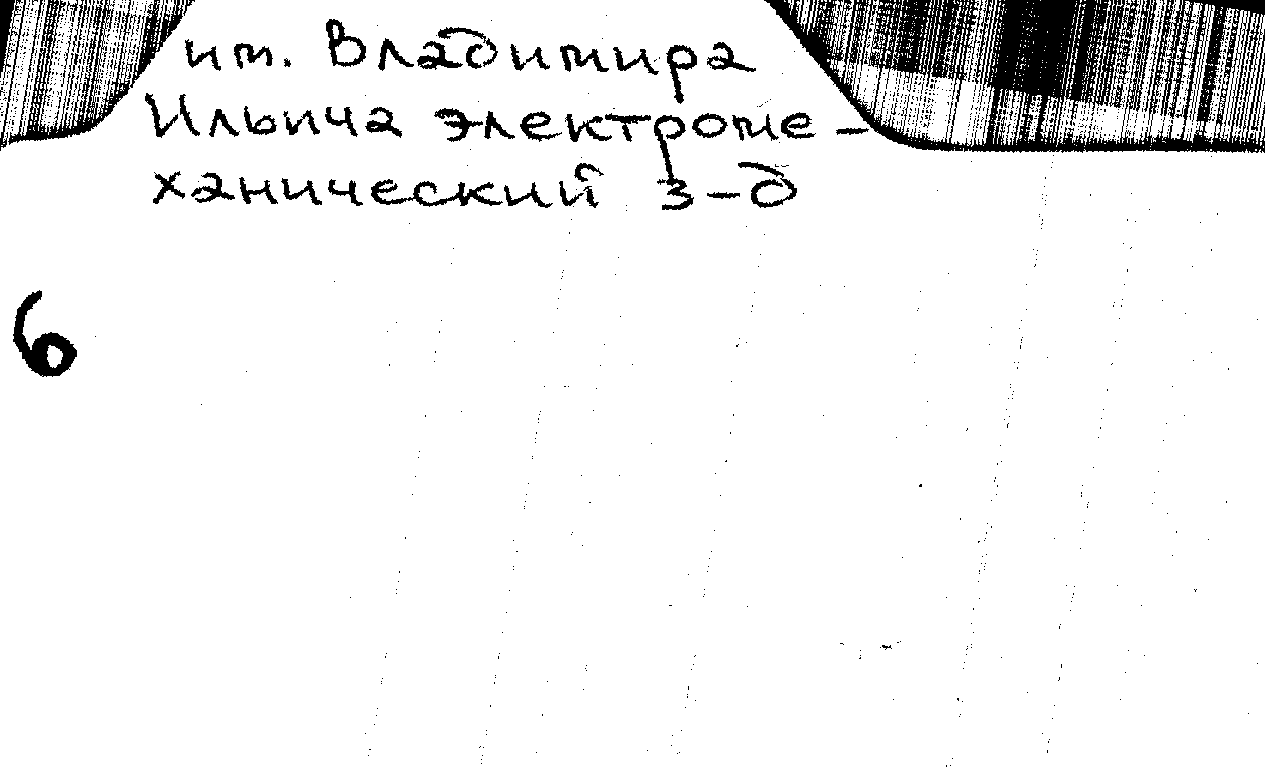 им. Владимира
Ильича электроме-
ханический з-д
6